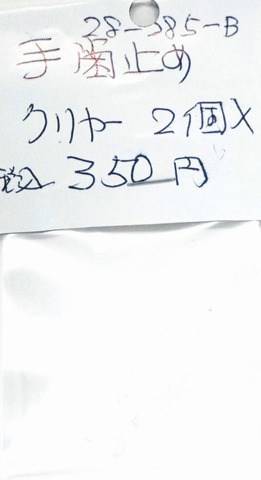 28-385-B
手歯止め
クリヤー 2個入
税込 350円